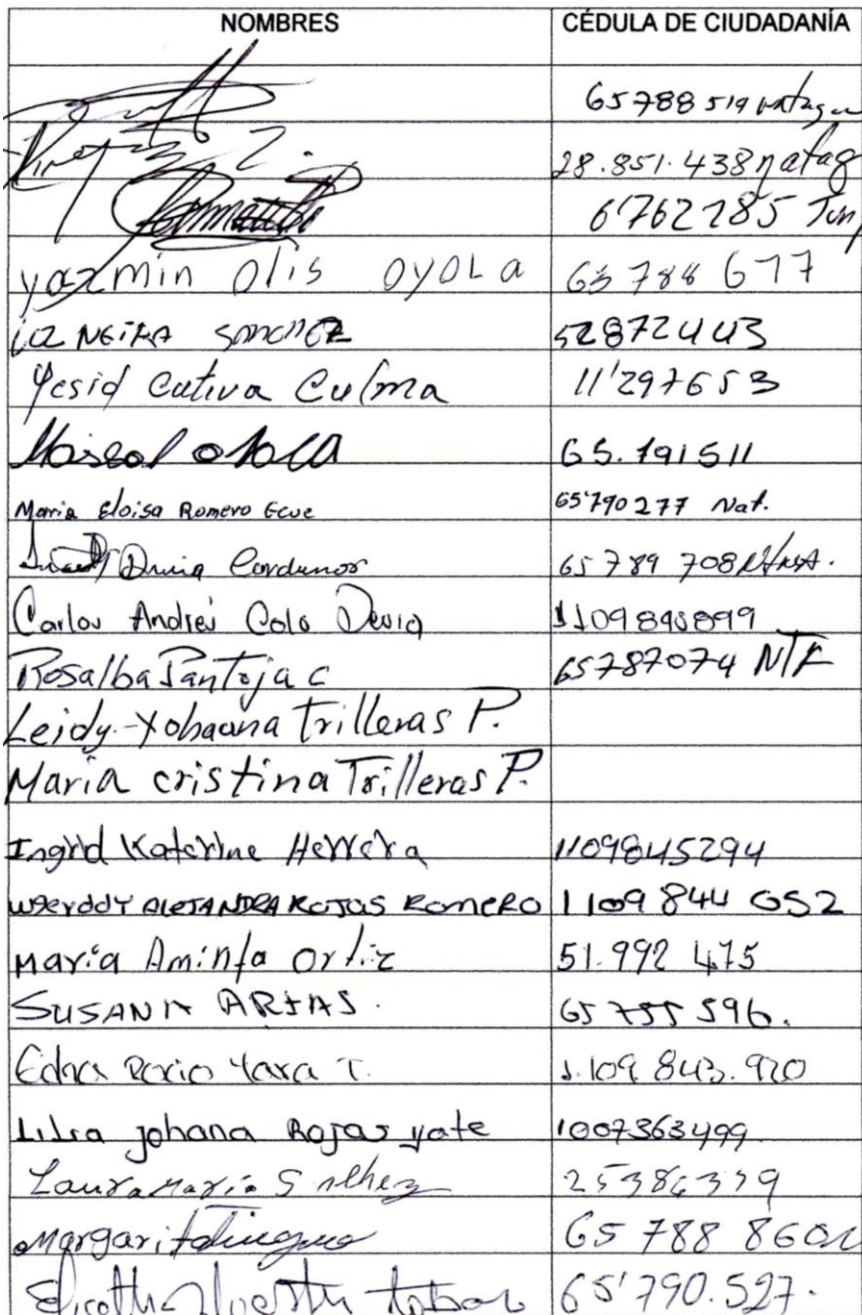 NOMBRES CÉDULA DE CIUDADANÍA
65788519
28.851.438 natag
6'762285 Tunj
yazmin Olis OYOLA 65788677
NEIRA SANCHEZ 52872443
Yesid Cativa Culma 11'297653
65.791511
Maria Eloisa Romero Ecue 65'790277 Nat.
65789708
Carlos Andres
Rosalba Pantoja C 65787074
Leidy-Yohaana Trilleras P.
Maria cristina Trilleras P.
Ingrid Katerine Herrera 1109845294
ALEJANDRA ROJAS ROMERO 1109 844 052
Maria Aminta Ortiz 51.992 475
SUSANA ARIAS. 65755596.
Edna Rocio Yara T. 1.109.843.920
Johana Rojas yate 1007363499
Laura Maria 25386379
Margarita 65788
65'790.527.